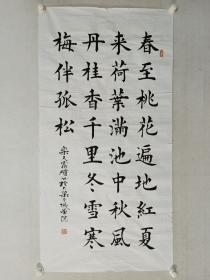 春至桃花遍地紅夏
来荷葉滿池中秋風
丹桂香千里冬雪寒
梅伴孤松